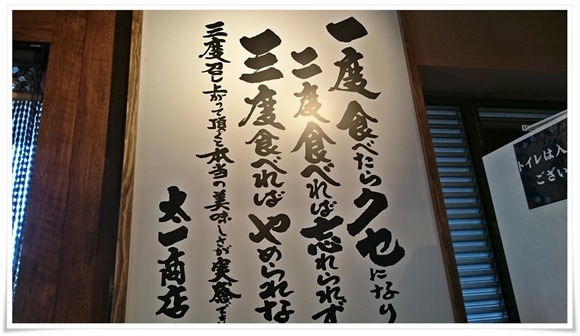 一度食べたらクセになり
二度食べれば忘れられず
三度食べれば やめられな
三度召し上がって頂くと本当の美味しさが実感でき
太一商店
トイレは入
ござい